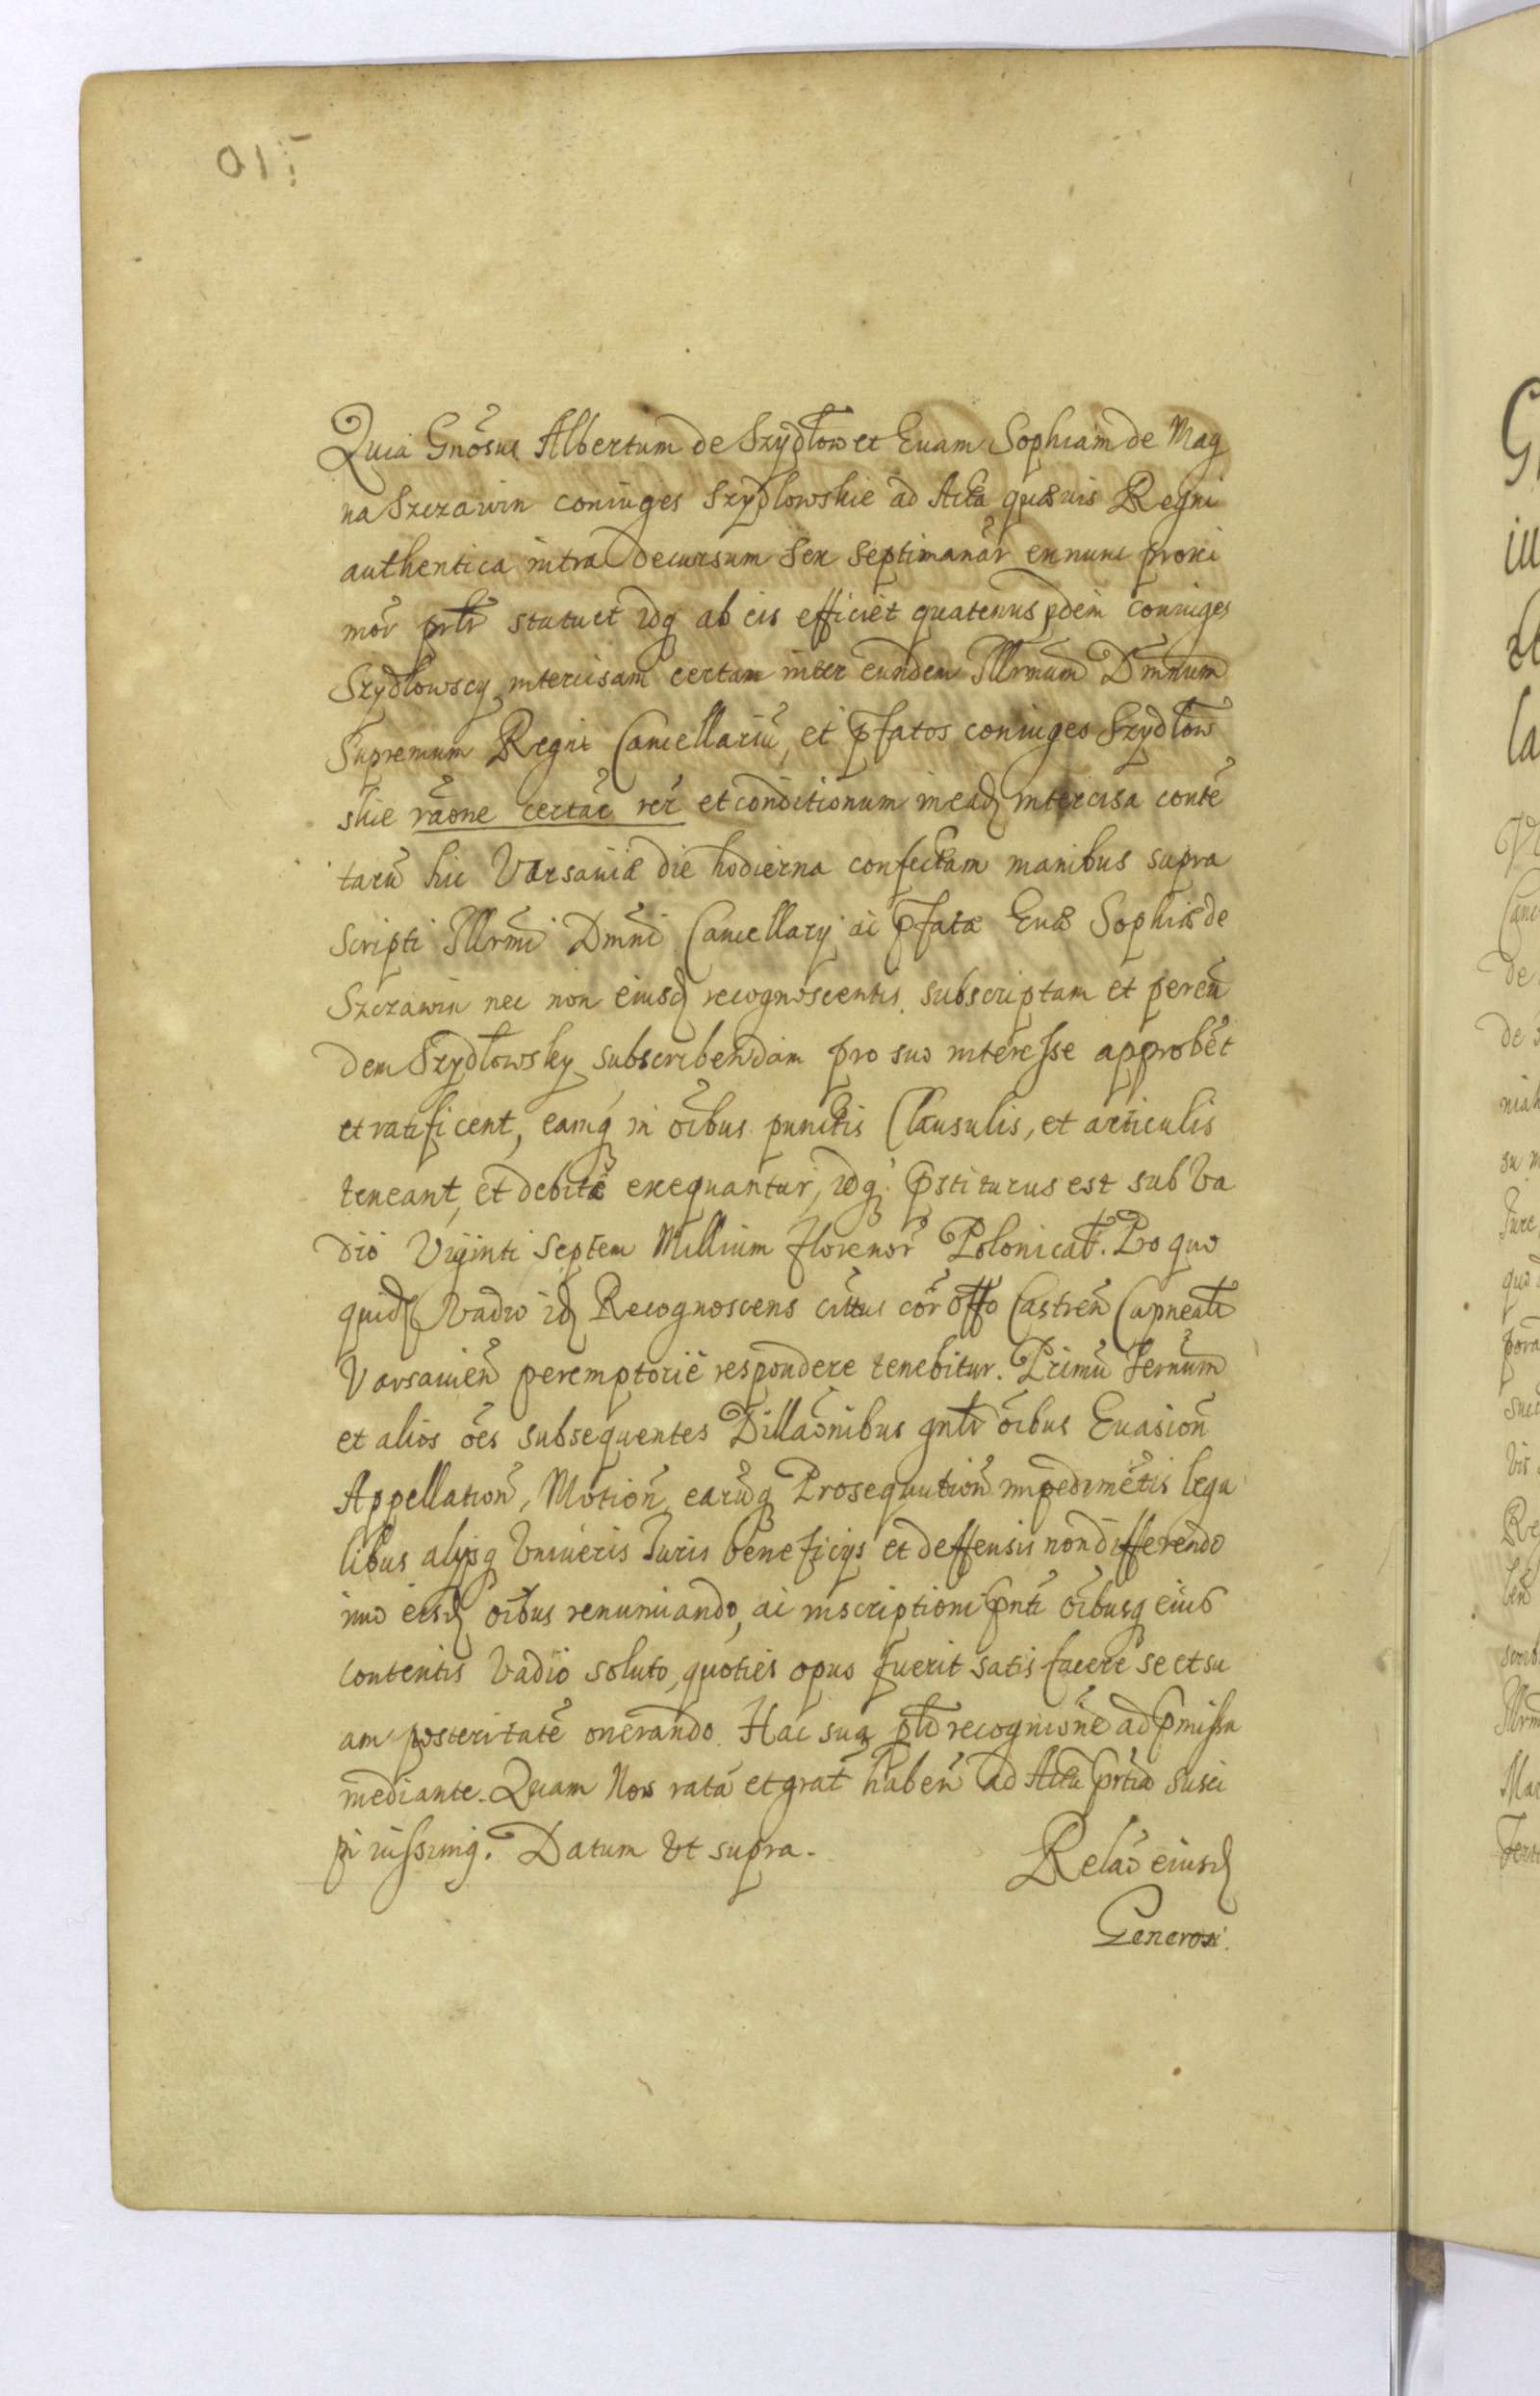 Quia Gnõsus Albertum de Szydłow et Euam Sophiam de Mag
na Szczawin coniuges Szydlowskie ad Acta quæuis Regni
authentica intra decursum sex septimanar̃ ex nunc proxi
mor̃ prlr̃ statuet idq ab eis efficiet quatenus pdem coniuges
Szydłowscy intercisam certam inter eundem Illrmum Dmnum
Supremum Regni Cancellariũ, et pfatos coniuges Szydłow
skie raõne certar̃ rer̃ et conditionum in ead intercisa contẽ
tarũ hic Varsauiæ die hodierna confectam manibus supra
scripti Illrmi Dmni Cancellarij ac pfatæ Euæ Sophiæ de
Szczawin nec non eiusd recognoscentis subscriptam et per eũ
dem Szydłowsky subscribendam pro suo interesse approbẽt
et ratificent, eamq in oĩbus punctis Clausulis, et articulis
teneant, et debitè exequantur, idq pstiturus est sub Va
dio Viginti Septem Millium florenor̃ Polonical. Pro quo
quid Vadio id Recognoscens cittus cor̃ Offo Castreñ Capneali
Varsauień peremptoriè respondere tenebitur. Primũ Ternum
et alios oẽs subsequentes Dillaõnibus gnlr oĩbus Euasioñ
Appellatioñ, Motioñ, earũq Prosequutioñ impedimẽtis lega
libus alijsq Vniuersis Iuris beneficijs et deffensis non differendo
imo eisd oĩbus renunciando, ac inscriptioni pnti oĩbusq eius
contentis Vadio soluto, quoties opus fuerit satis facere se et su
am posteritatẽ onerando. Hac sua pli recogniõne ad pmissa
mediante. Quam Nos ratã et grat habeñ ad Acta prtia susci
pi iussimq. Datum Vt supra.
Relaõ eiusd
Generosi.